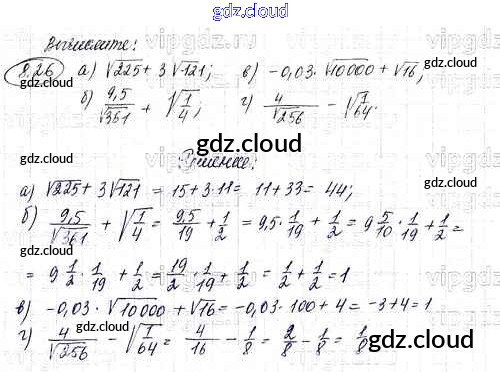 gdz.cloud
Вычислите:
8.26 а) √225 + 3√121; в) -0,03·√10000 + √16;
б) 9,5/√361 + √(1/4); г) 4/√256 - √(1/64).
gdz.cloud
gdz.cloud
gdz.cloud
Решение:
а) √225 + 3√121 = 15+3·11 = 11+33 = 44;
б) 9,5/√361 + √(1/4) = 9,5/19 + 1/2 = 9,5·1/19 + 1/2 = 9 5/10 · 1/19 + 1/2 =
= 9 1/2 · 1/19 + 1/2 = 19/2 · 1/19 + 1/2 = 1/2 + 1/2 = 1
в) -0,03·√10000 + √16 = -0,03·100+4 = -3+4=1
г) 4/√256 - √(1/64) = 4/16 - 1/8 = 2/8 - 1/8 = 1/8
gdz.cloud
gdz.cloud